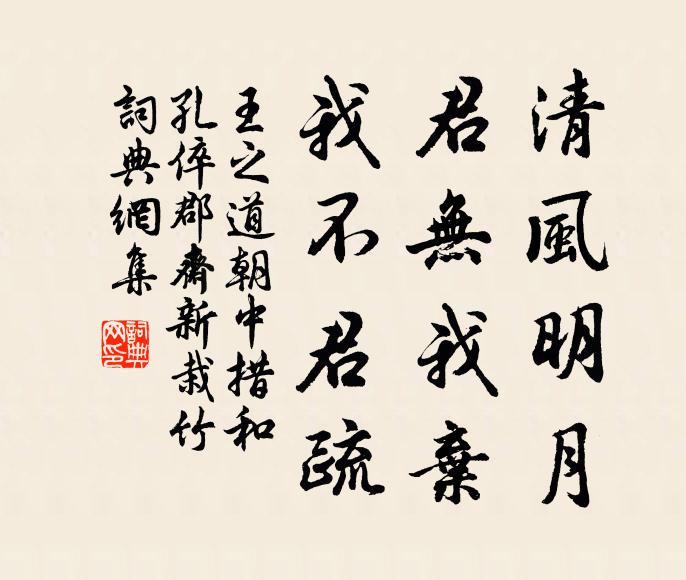 清風明月
君無我棄
我不君疏
王之道朝中措和
孔倅郡齋新栽竹
詞典網集
詞典網印